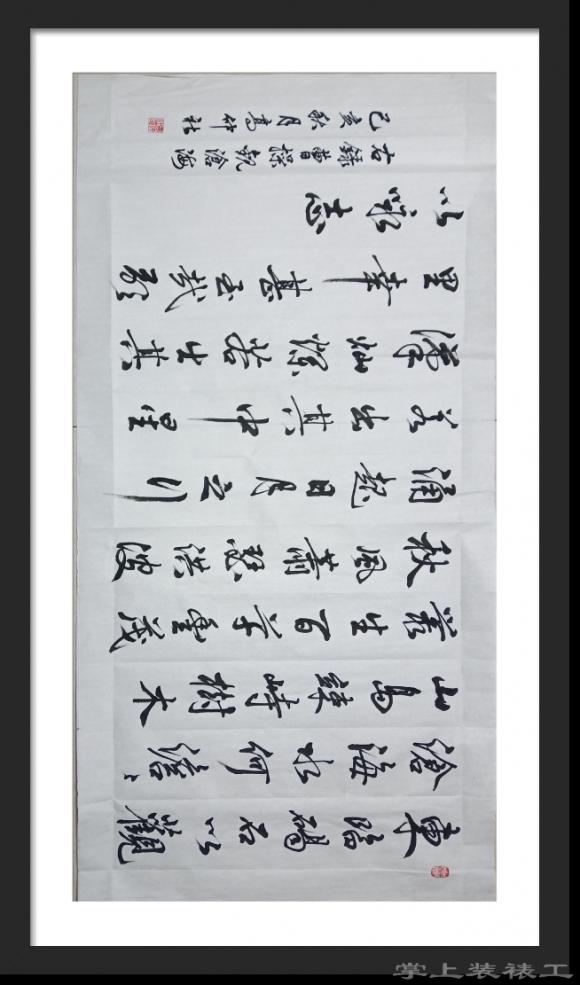 東臨碣石以觀
滄海水何澹〻
山島竦峙樹木
叢生百草豐茂
秋風蕭瑟洪波
涌起日月之行
若出其中星
漢灿爛若出其
里幸甚至哉歌
以詠志
右錄曹操觀滄海
己亥秋月高竹社
掌上装裱工